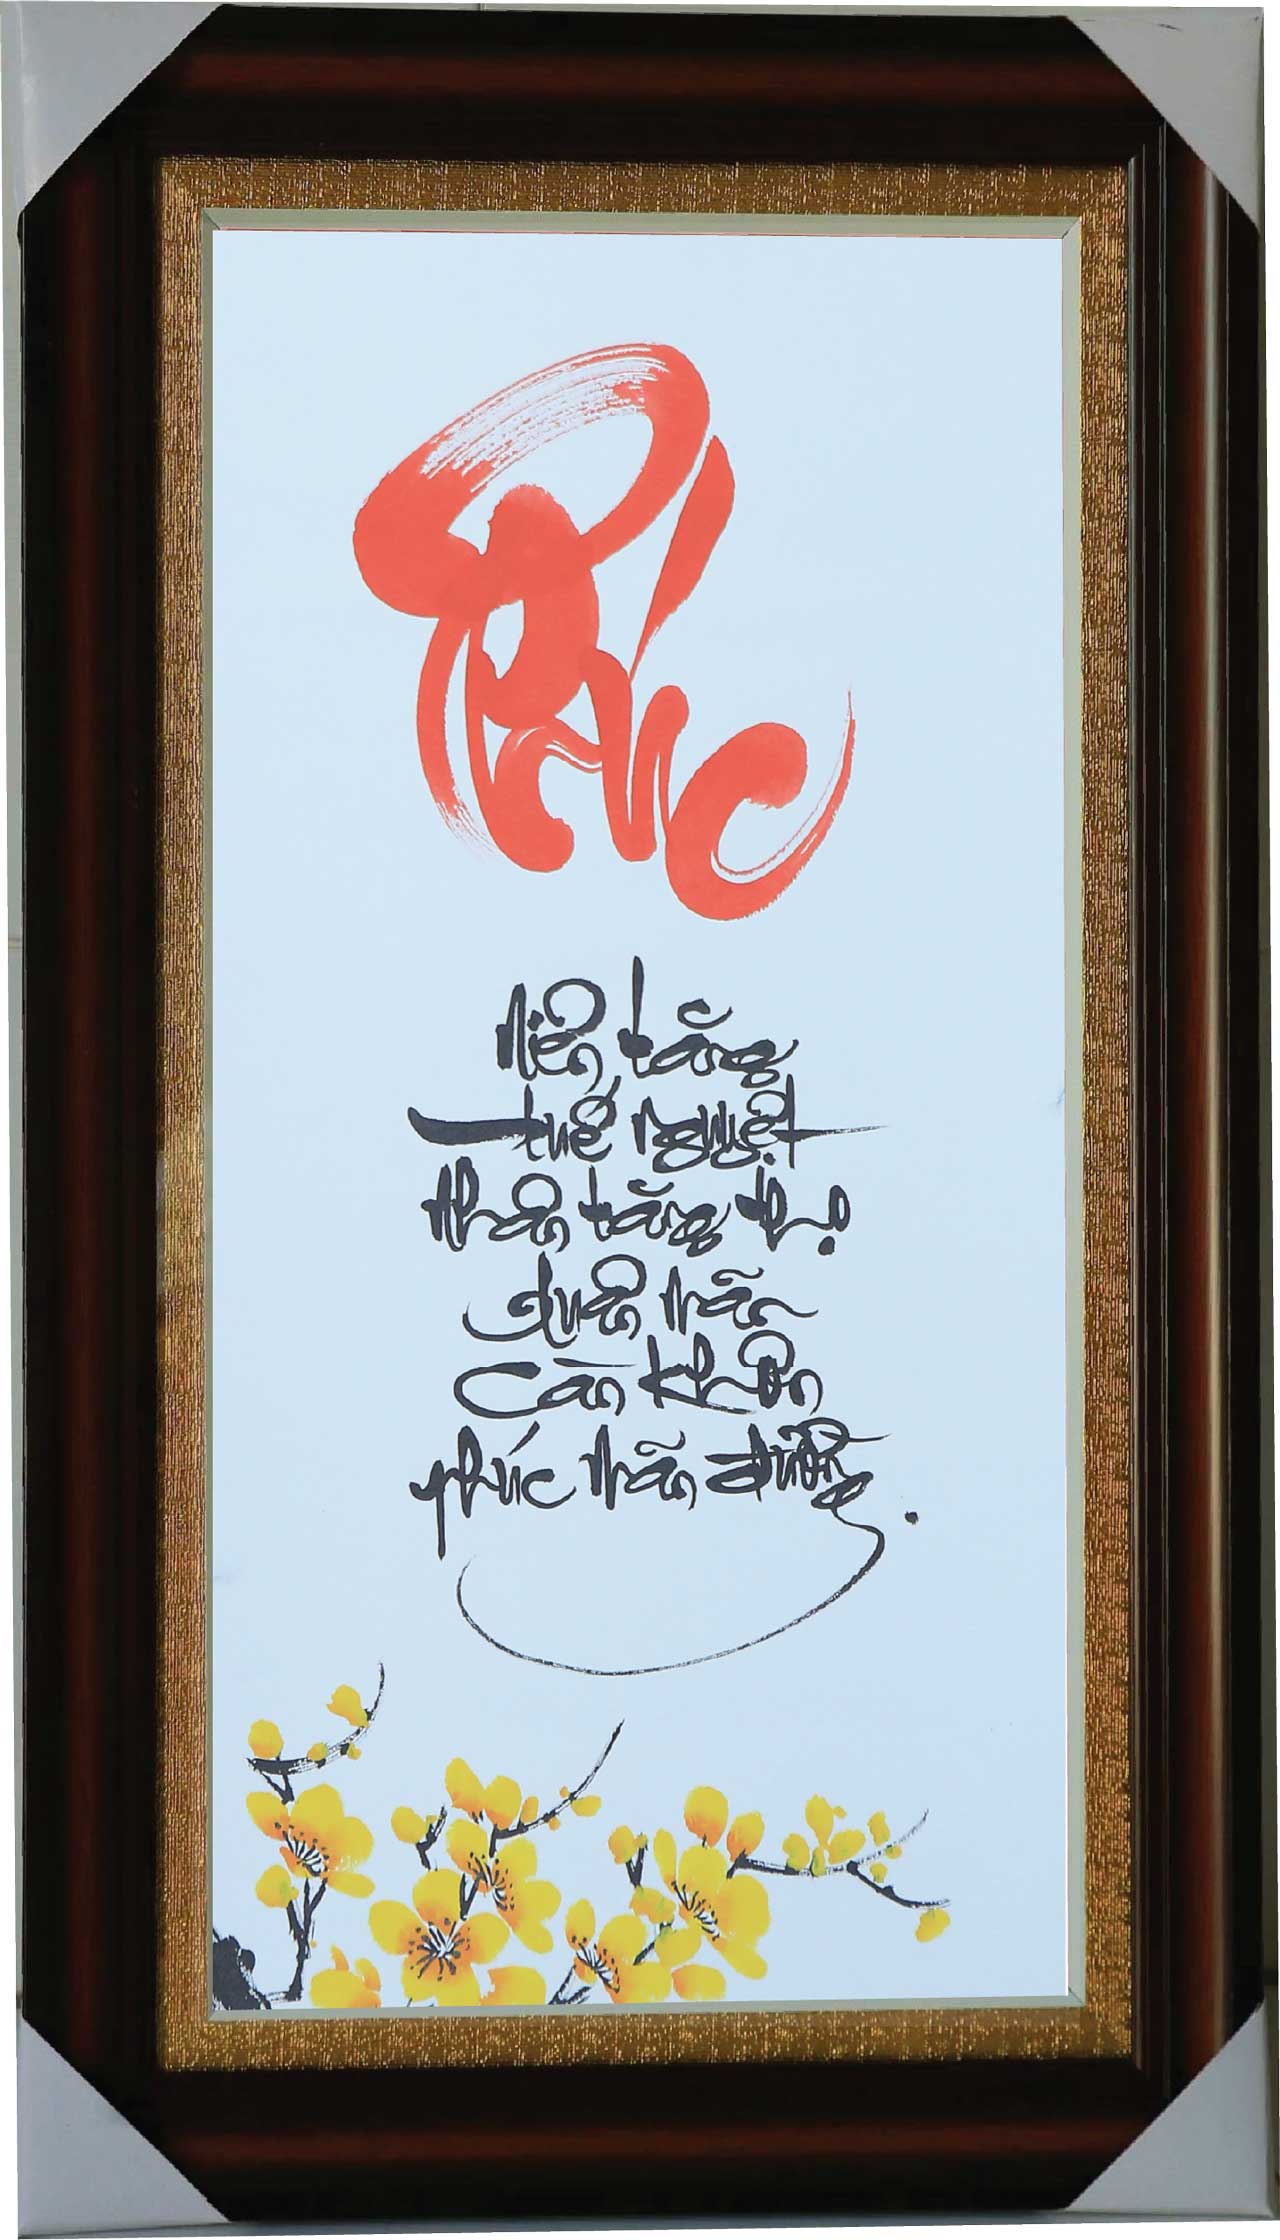 Phúc
Niên tăng
tuế nguyệt
Nhân tăng thọ
Xuân mãn
Càn khôn
phúc mãn đường.